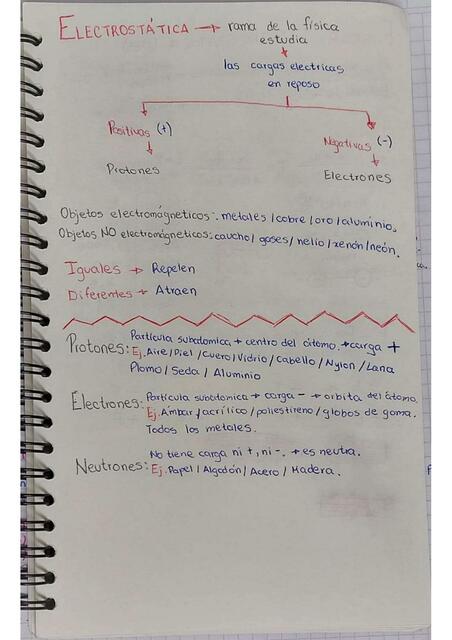 ELECTROSTÁTICA → rama de la física
estudia
las cargas electricas
en reposo
Positivas (+) Negativas (-)
Protones Electrones
Objetos electromágneticos: metales/cobre/oro/aluminio.
Objetos NO electromágneticos: caucho/gases/helio/xenón/neón.
Iguales → Repelen
Diferentes → Atraen
Partícula subatomica → centro del átomo → carga +
Protones: Ej. Aire/Piel/Cuero/Vidrio/Cabello/Nylon/Lana
Plomo/Seda/Aluminio
Electrones: Partícula subatómica → carga - → orbita del átomo.
Ej. Ambar/acrílico/poliestireno/globos de goma.
Todos los metales.
No tiene carga ni +, ni -. → es neutra.
Neutrones: Ej. Papel/Algodón/Acero/Madera.